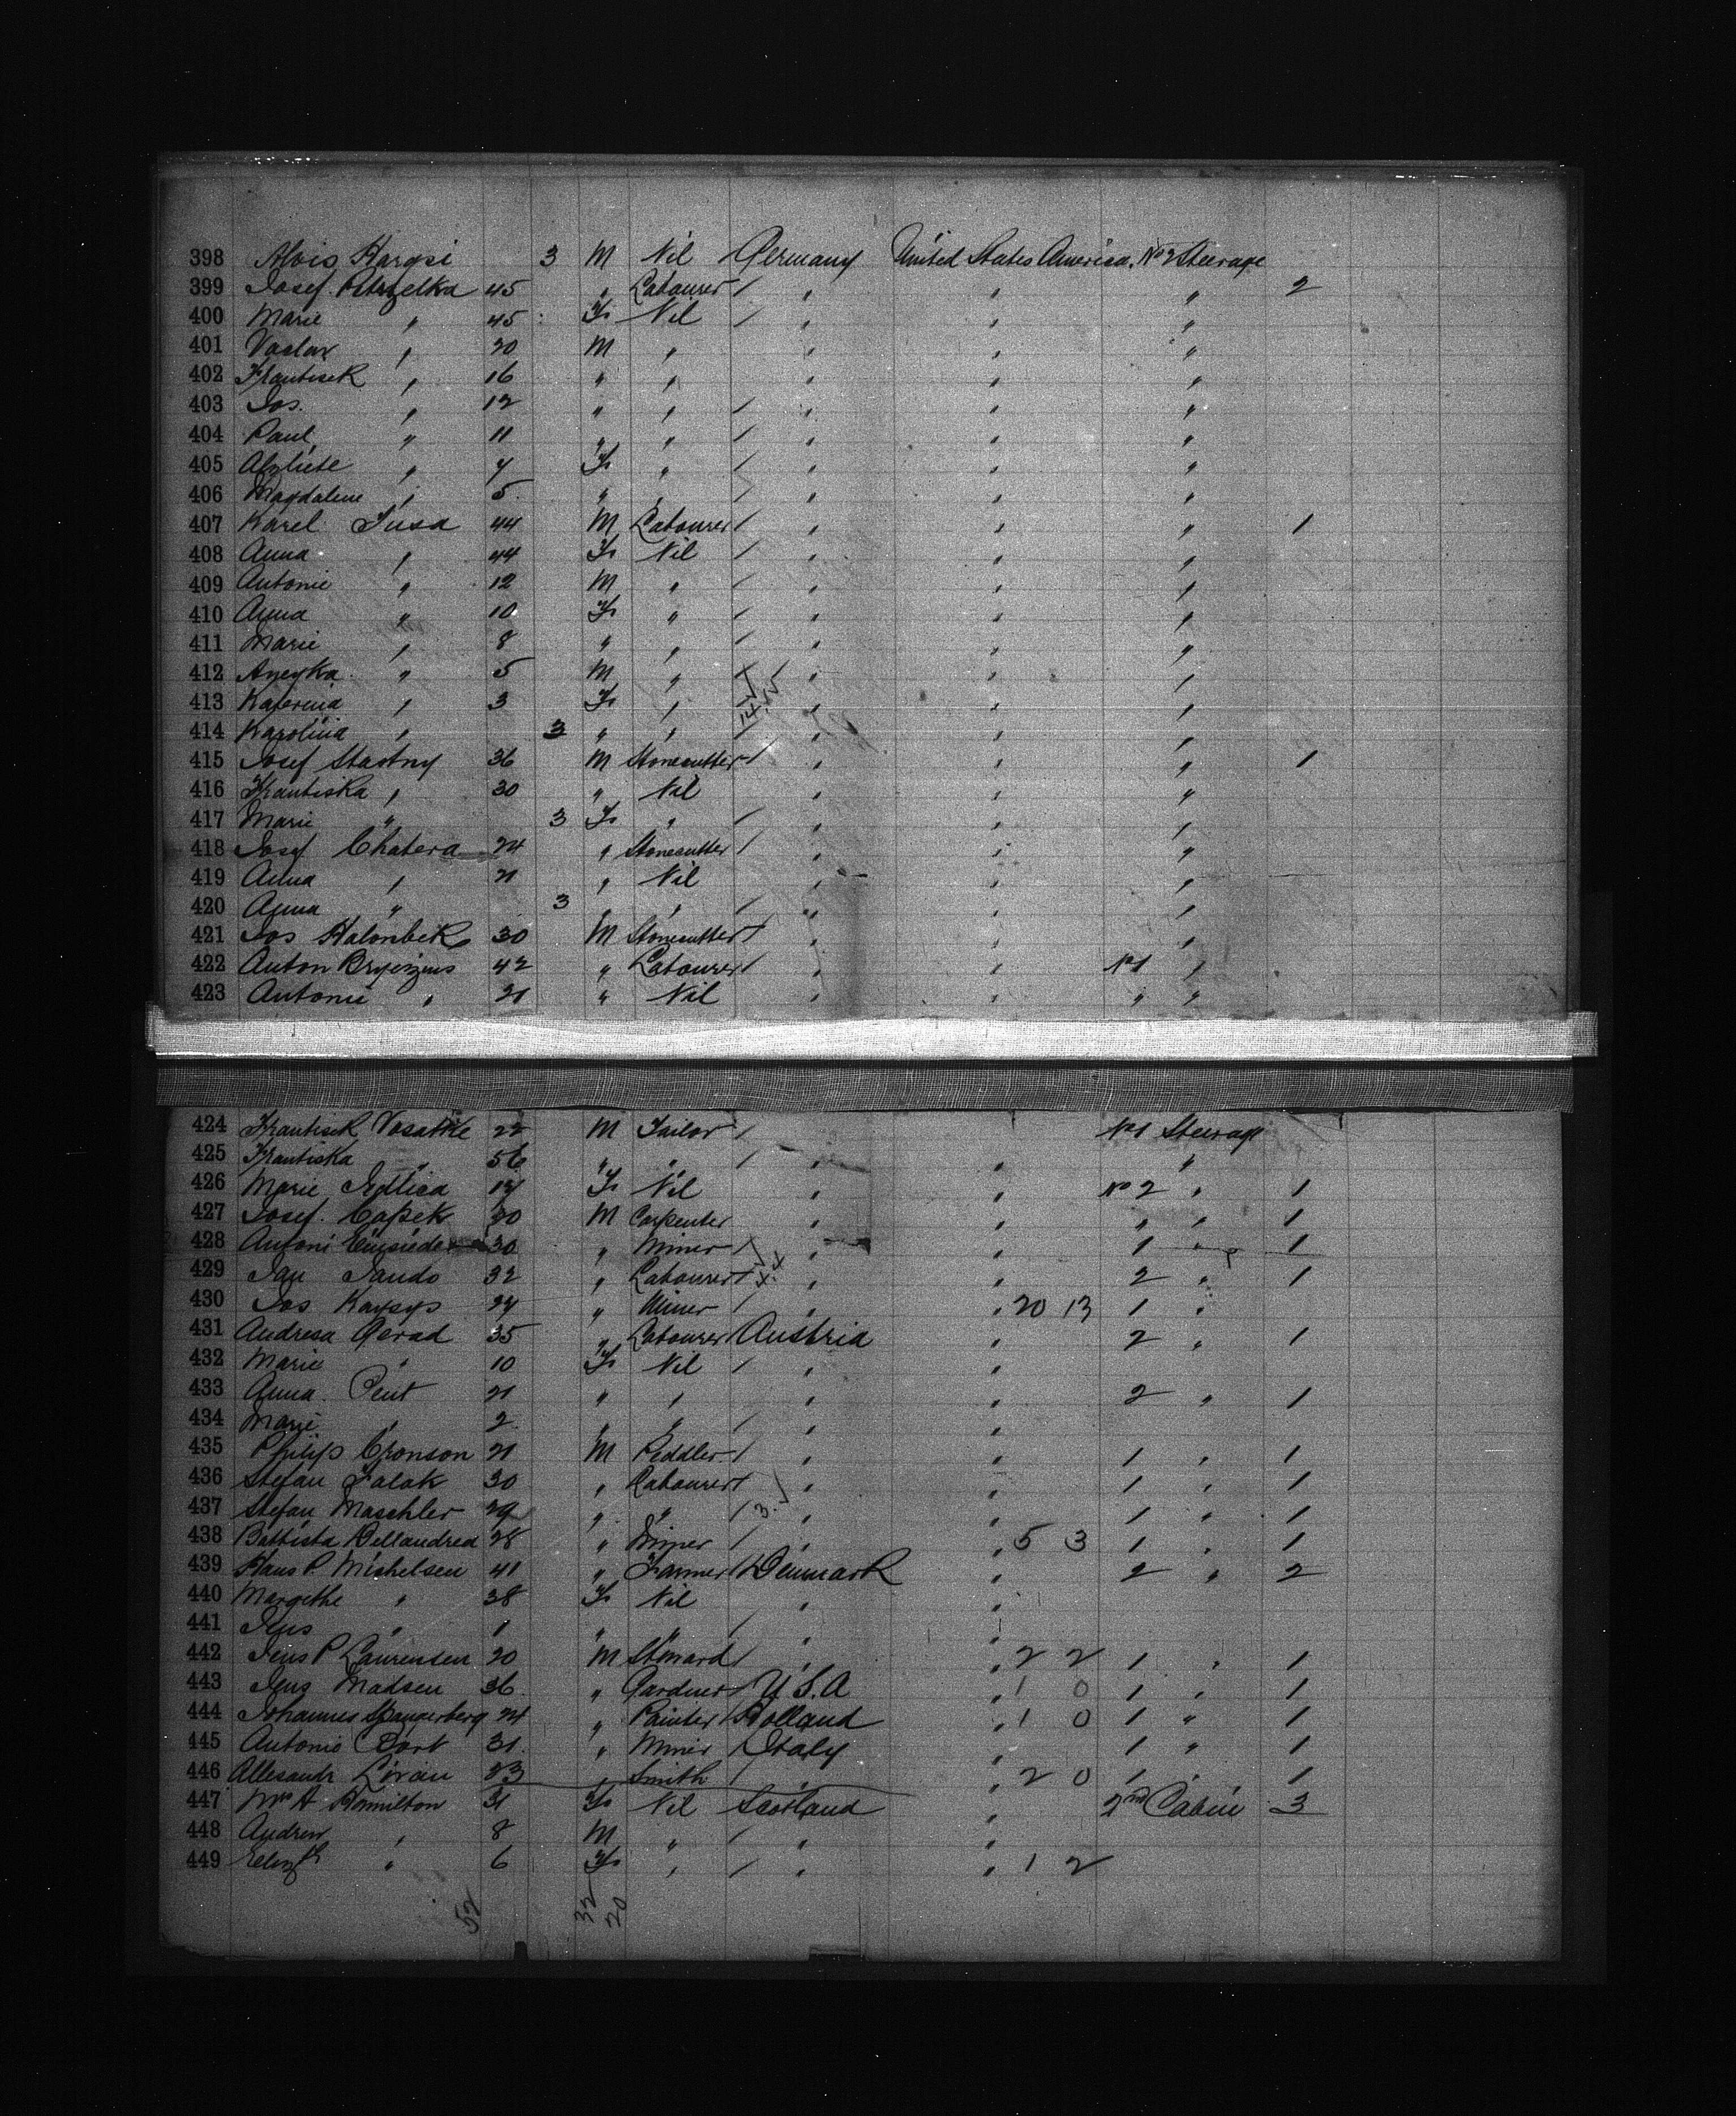 398 Alois Hargsi 3 M Nil Germany United States America. No 2 Steerage
399 Josef Petrzelka 45 " Labourer / " " " 2
400 Marie " 45 Fe Nil / " " "
401 Vaclav " 20 M " " " "
402 Frantisek " 16 " " " " "
403 Jos. " 12 " " / " " "
404 Paul " 11 " " / " " "
405 " Fe " / " " "
406 Magdalene " 5 " " / " " "
407 Karel Susa 44 M Labourer / " " " 1
408 Anna " 44 Fe Nil / " " "
409 Antonie " 12 M " / " " "
410 Anna " 10 Fe " / " " "
411 Marie " 8 " " / " " "
412 " 5 M " / " " "
413 Katerina " 3 Fe " " " "
414 Karolina " 3 " " / " " "
415 Josef Stastny 36 M Stonecutter / " " " 1
416 Frantiska " 30 " Nil " " "
417 Marie " 3 Fe " / " " "
418 Josef Chatera 24 " Stonecutter / " " "
419 Anna " 21 " Nil " " "
420 Anna " 3 " " / " " "
421 Jos Halonbek 30 M Stonecutter / " " "
422 Anton 42 " Labourer / " " No 1 "
423 Antonie " 21 " Nil " " " "
424 Frantisek 22 M Tailor / No 1 Steerage
425 Frantiska " 56 " " / " " "
426 Marie Jedlica 17 Fe Nil " " No 2 " 1
427 Josef Capek 20 M Carpenter " " " " 1
428 Antoni 30 " Miner / " 1 " 1
429 Jan Jando 32 " Labourer / " " 2 " 1
430 Jos 24 " Miner / " " 20 13 1 "
431 Andresa Gerad 35 " Labourer / Austria " 2 " 1
432 Marie " 10 Fe Nil / " "
433 Anna Pent 21 " " " " 2 " 1
434 Marie " 2 " " / " "
435 Philip Cronson 21 M Peddler / " " 1 " 1
436 Stefan 30 " Labourer / " " 1 " 1
437 Stefan Maschler 29 " " / " " 1 " 1
438 Battista Dellandrea 28 " Miner / " " 5 3 1 " 1
439 Hans P. Michelsen 41 " Farmer / Denmark " 2 " 2
440 Margethe " 38 Fe Nil " "
441 Jens " 1 " " / " "
442 Jens P Laurensen 20 M Steward / " " 2 2 1 " 1
443 Jens Madsen 36 " Gardner / U.S.A " 1 0 1 " 1
444 Johannes Spangerberg 24 " Painter / Holland " 1 0 1 " 1
445 Antonio Bort 31 " Miner / Italy " 1 " 1
446 Allesandr Lovan 23 " Smith / " " 2 0 1 " 1
447 Mrs A Hamilton 31 Fe Nil Scotland " 2nd Cabin 3
448 Andrew " 8 M " / " "
449 Elizth " 6 Fe " / " " 1 2
52 32 20